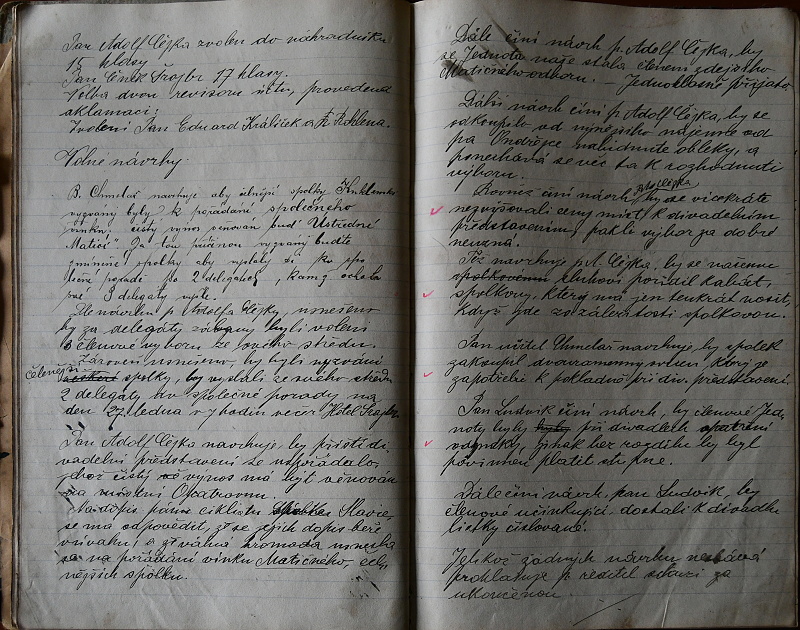 Jan Adolf Cejka zvolen do náhradníka
15 hlasy
Jan Cinek Šrajbr 17 hlasy.
Volba dvou revisorů účtu, provedena
aklamací:
Zvoleni Jan Eduard Králíček a Fr.
Volné návrhy.
B. Chmelař navrhuje aby zdejší spolky
vyzvány byly k pořádání společného
vínku, čistý výnos věnován buď Ústřední
Matici". Za tou příčinou vyzvány buďte
zmíněné spolky aby vyslaly si ku spo
lečné poradě po 2 delegátech, kam z
3 delegáty vyšle.
Dle návrhu p Adolfa Cejky, usnešeno
by za delegáty zábavy byli voleni
3 členové výboru ze svého středu.
Zároveň usnešeno, by byli vyzváni
čelnější
spolky, by vyslali ze svého středu
2 delegáty ku společné porady na
den 27 ledna v 7 hodin večer Hotel
Jan Adolf Cejka navrhuje, by příští di,
vadelní představení se uspořádalo,
čistý výnos má být věnován
na místní Opatrovnu.
Na dopis pánů cyklistů Slavie,
se má odpovědět, že se jejich dopis béře
v úvahu, a valná hromada usnesla
se na pořádání vínku Matičného, čel,
nějších spolku.
Dále činí návrh p. Adolf. Cejka, by
se Jednota naše stala členem zdejšího
Matičného odboru. – Jednohlasně přijato.
Dálší návrh činí p Adolf Cejka, by se
odkoupilo od nynějšího nájemce od
pa Ondřejce nabídnuté obleky, a
ponechává se věc ta k rozhodnutí
výboru.
Rovněž činí návrh p Ad. Cejka, by se vícekráte
nezvyšovali ceny míst, k divadelním
představením, pakli výbor za dobré
neuzná.
Též navrhuje p A. Cejka, by se našemu
spolkovému sluhovi pořídil kabát,
spolkový, který má jen tenkrát nosit,
když jde v záležitosti spolkovou.
Jan učitel Chmelař navrhuje, by spolek
zakoupil dvouramenný svícen, který je
zapotřebí k pokladně při div. představení.
Pan Ludvík činí návrh, by členové Jed,
noty byly při divadlech opatřeni
odznaky, jinak bez rozdílu by byl
povinnen platit vstupné.
Dále činí návrh pan Ludvík, by
členové účinkující dostali k divadlu
lístky číslované.
Jelikož žádných návrhu
prohlašuje p ředitel schůzi za
ukončenou.